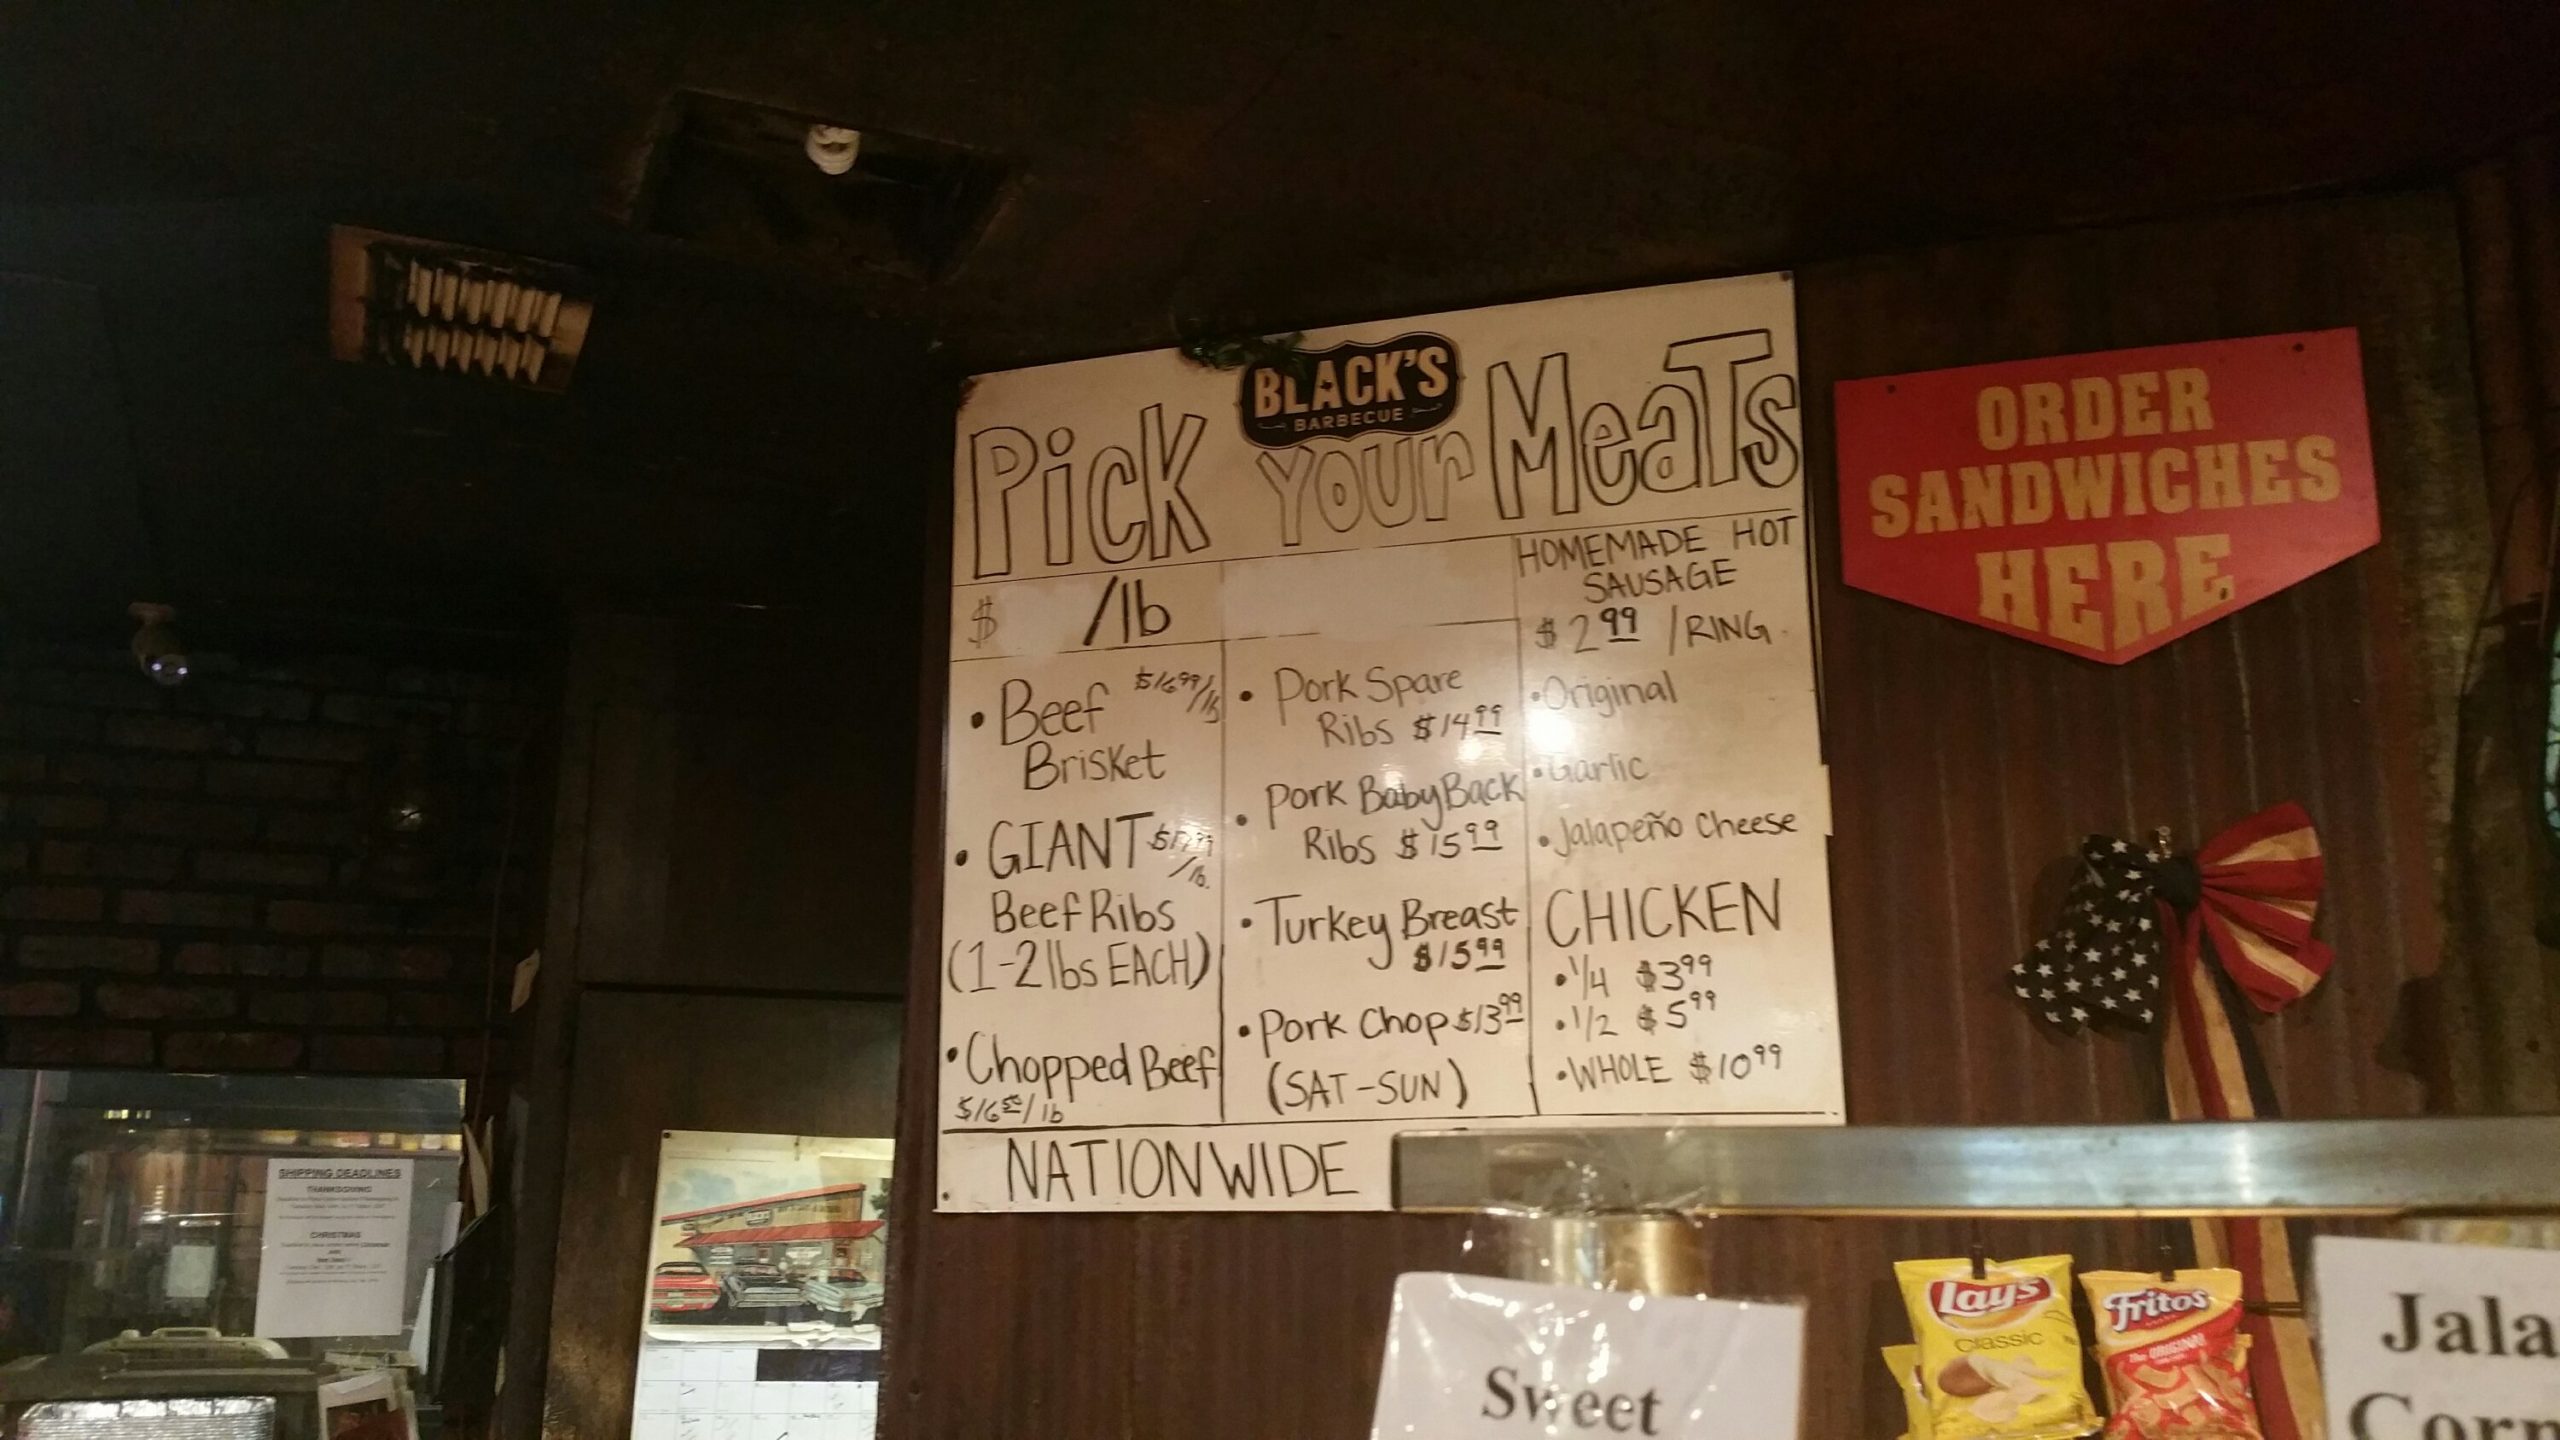 BLACK'S
BARBECUE
Pick Your Meats
$ /lb
• Beef $16.99/lb
Brisket
• GIANT
/lb.
Beef Ribs
(1-2 lbs EACH)
• Chopped Beef
$16.50/lb
• Pork Spare
Ribs $14.99
• Pork Baby Back
Ribs $15.99
• Turkey Breast
$15.99
• Pork Chop $13.99
(SAT-SUN)
HOMEMADE HOT
SAUSAGE
$2.99 /RING
• Original
• Garlic
• Jalapeño Cheese
CHICKEN
• 1/4 $3.99
• 1/2 $5.99
• WHOLE $10.99
NATIONWIDE
ORDER
SANDWICHES
HERE
SHIPPING DEADLINES
THANKSGIVING
CHRISTMAS
Sweet
Lay's
Classic
Fritos
The ORIGINAL
Jala
Corn